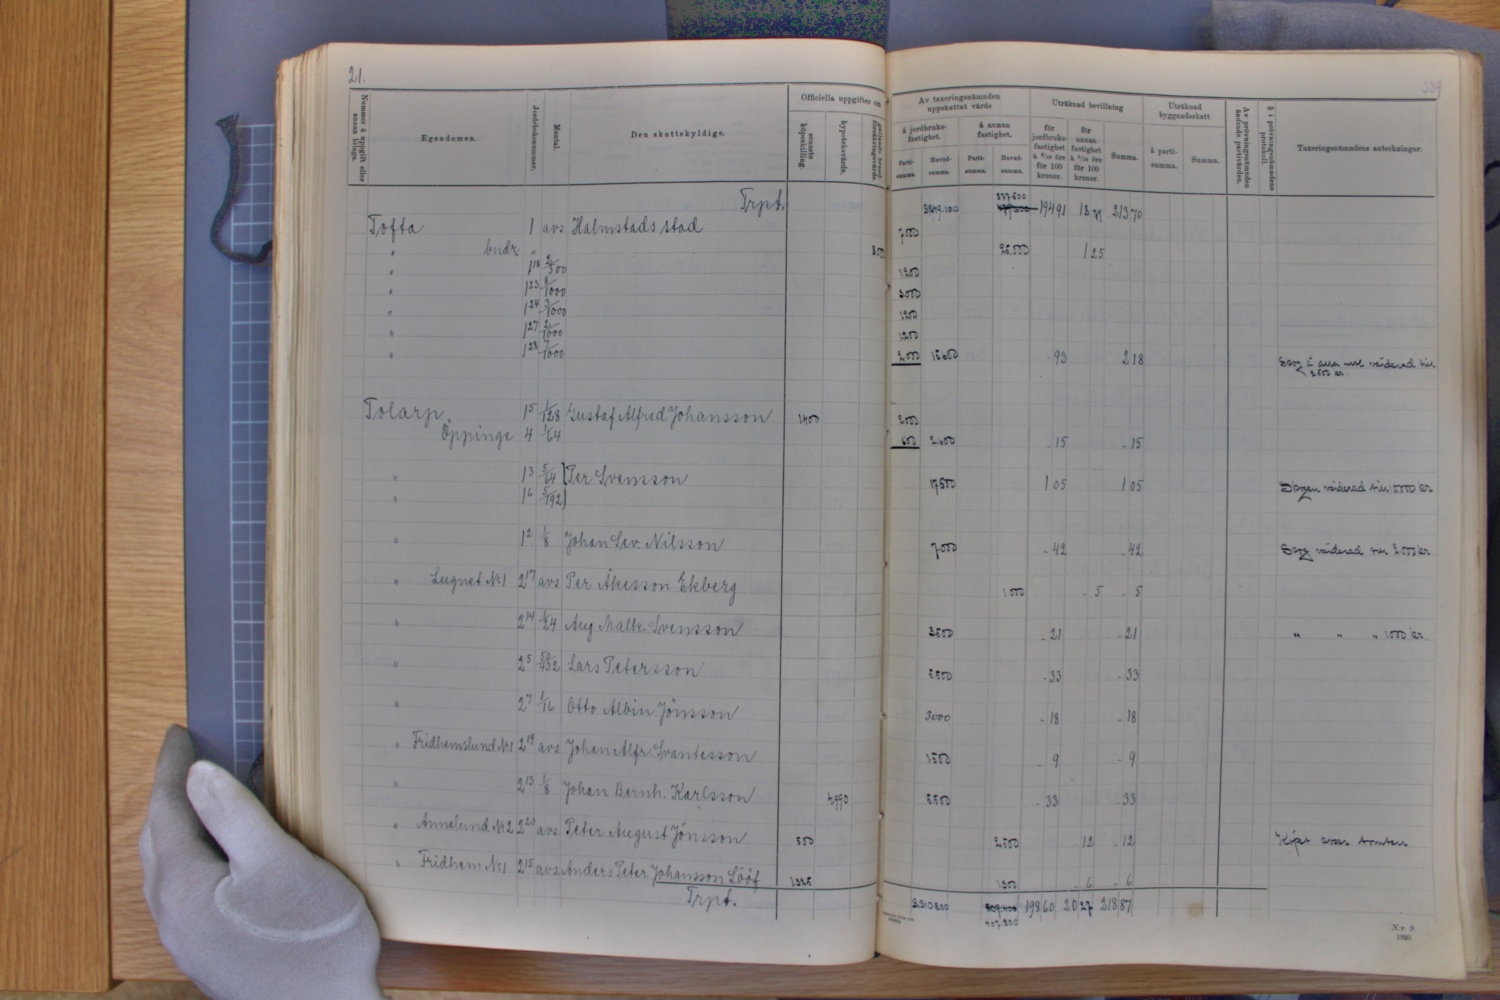 21.
389
Nummer å uppgift eller annan bilaga.
Egendomen.
Jordeboksnummer.
Mantal.
Den skattskyldige.
Officiella uppgifter om
senaste köpeskilling.
hypoteksvärde.
Av taxeringsnämnden uppskattat värde
å jordbruks-fastighet.
å annan fastighet.
Parti-summa.
Huvud-summa.
Parti-summa.
Huvud-summa.
Uträknad bevillning
för jordbruks-fastighet
för annan fastighet
för 100 kronor.
Summa.
Uträknad byggnadsskatt
å parti-summa.
Summa.
Av prövningsnämnden ändrade partivärden.
§ i prövningsnämndens protokoll.
Taxeringsnämndens anteckningar.
Trpt. 194 91 213 70
Tofta 1 avs Halmstads stad 7000
" bndr " 25.000 1 25
" 1 18 2/300 1200
" 1 23 8/1000 3000
" 1 24 3/1000 1200
" 1 27 2/1000 1200
" 1 28 7/1000 2000 - 93 2 18
Tolarp 1 5 1/128 Gustaf Alfred Johansson 2000
Öppinge 4 1/64 600 2600 - 15 - 15
" 1 3 5/64 Per Svensson 17500 1 05 1 05 Skogen värderad till 10000 kr
" 1 6 5/192
" 1 2 1/8 Johan Sev. Nilsson 7000 - 42 - 42 Skog värderad till 2.000 kr
" Lugnet No 1 2 17 avs Per Åkesson Ekberg 1000 - 5 - 5
" 2 14 1/24 Aug. Malk. Svensson 3500 - 21 - 21 " " " 1000 kr
" 2 5 Lars Petersson 5500 - 33 - 33
" 2 7 1/16 Otto Albin Jönsson 3000 - 18 - 18
" Fridhemslund No 1 2 19 avs Johan Alfr. Svantesson 1500 - 9 - 9
" 2 13 1/8 Johan Bernh. Karlsson 5500 - 33 - 33
" Annelund No 2 2 20 avs. Peter August Jönsson 550 2500 - 12 - 12 Köpet avser tomten
" Fridhem No 1 2 15 avs Anders Peter Johansson Lööf 1325 1200 - 6 - 6
Trpt. 198 60 20 27 218 87
N:r 9.
1920.